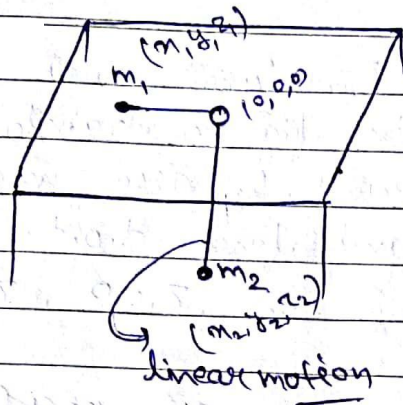 (x, y, z)
m₁
(0,0,0)
m₂
(x₂, y₂, z₂)
linear motion